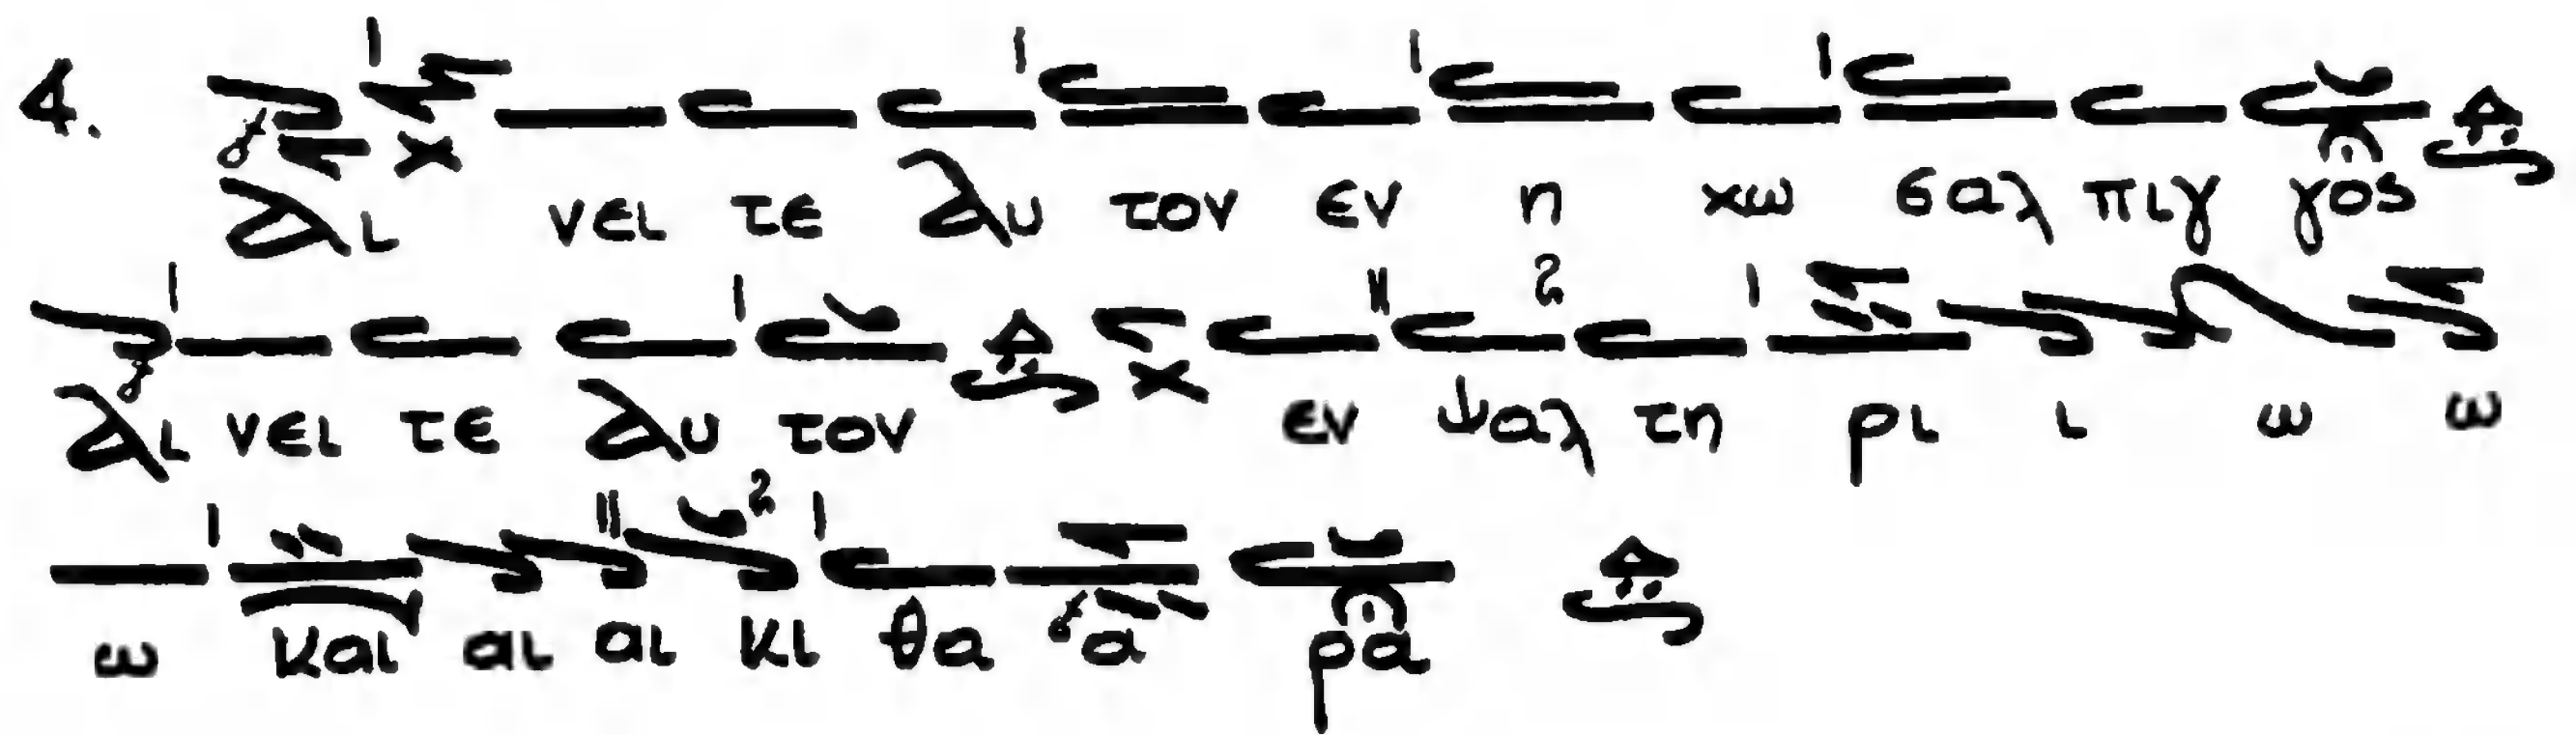 4. Αι νει τε Αυ τον εν η χω σαλ πιγ γος
Αι νει τε Αυ τον εν ψαλ τη ρι ι ω ω
ω και αι αι κι θα α ρα